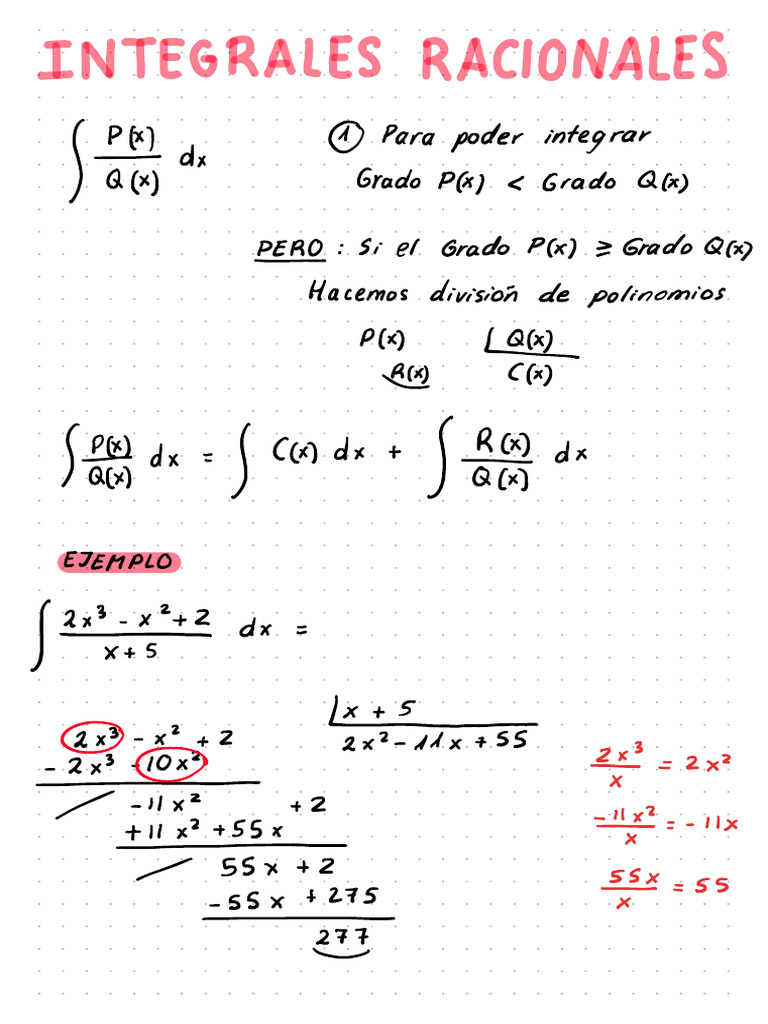 INTEGRALES RACIONALES
∫ P(x)/Q(x) dx
① Para poder integrar
Grado P(x) < Grado Q(x)
PERO : Si el Grado P(x) ≥ Grado Q(x)
Hacemos división de polinomios
P(x) Q(x)
R(x) C(x)
∫ P(x)/Q(x) dx = ∫ C(x) dx + ∫ R(x)/Q(x) dx
EJEMPLO
∫ (2x³ - x² + 2)/(x + 5) dx =
2x³ - x² + 2 x + 5
- 2x³ - 10x² 2x² - 11x + 55
-11x² + 2
+11x² + 55x
55x + 2
-55x + 275
277
2x³/x = 2x²
-11x²/x = -11x
55x/x = 55